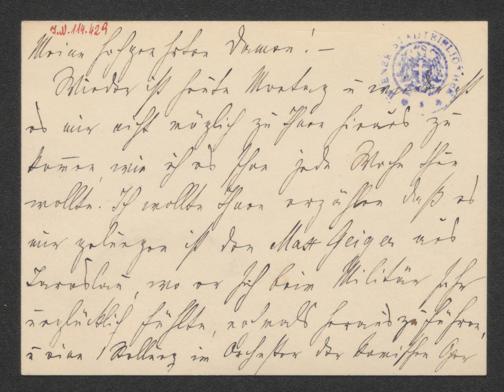 J.N. 114.429
WIENER STADTBIBLIOTHEK
Meine hochgeehrten Damen! –
Wieder ist heute Montag u wieder ist
es mir nicht möglich zu Ihnen hinaus zu
kommen, wie ich es schon jede Woche thun
wollte. Ich wollte Ihnen erzählen daß es
mir gelungen ist den Max Geiger aus
Jaroslau, wo er sich beim Militär sehr
unglücklich fühlte, nochmals herauszuführen,
u eine Stellung im Orchester der komischen Oper